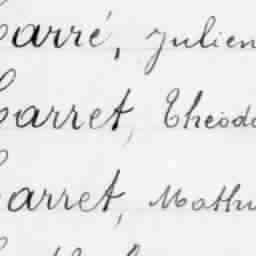 Carré, Julien
Carret, Théodo
Carret, Mathu